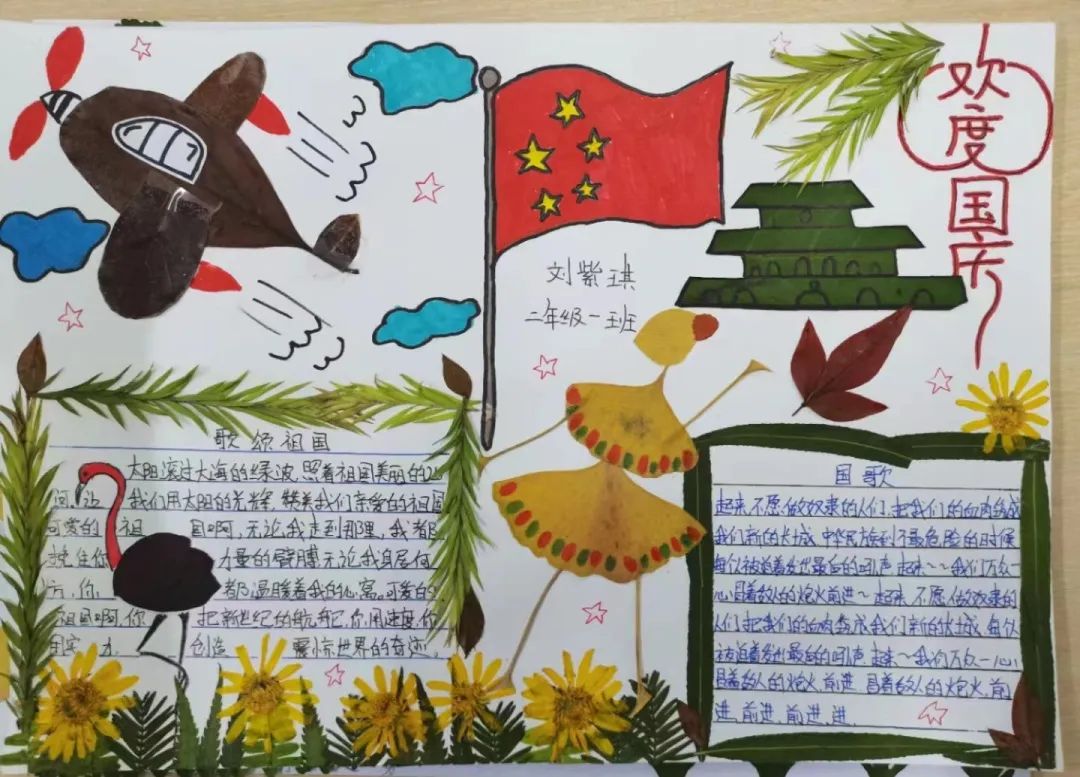 欢度国庆
刘紫琪
二年级一班
歌颂祖国
太阳滚过大海的绿波,照着祖国美丽的山
间,边 我们用太阳的光辉,赞美我们亲爱的祖国
可爱的 祖 国啊,无论我走到那里,我都
挽住你 力量的臂膊,无论我身居何
方,你 都温暖着我的心窝。可爱的
祖国啊,你 把新世纪的航 ,你用速度,你
用实 力 创造 震惊世界的奇迹。
国歌
起来,不愿做奴隶的人们,把我们的血肉筑成
我们新的长城,中华民族到了最危险的时候
每个被迫着发出最后的吼声,起来~~我们万众一
心冒着敌人的炮火前进~起来,不愿做奴隶的
人们把我们的血肉筑成我们新的长城,每个
被迫着发出最后的吼声,起来~我们万众一心
冒着敌人的炮火,前进,冒着敌人的炮火,前
进,前进,前进,进